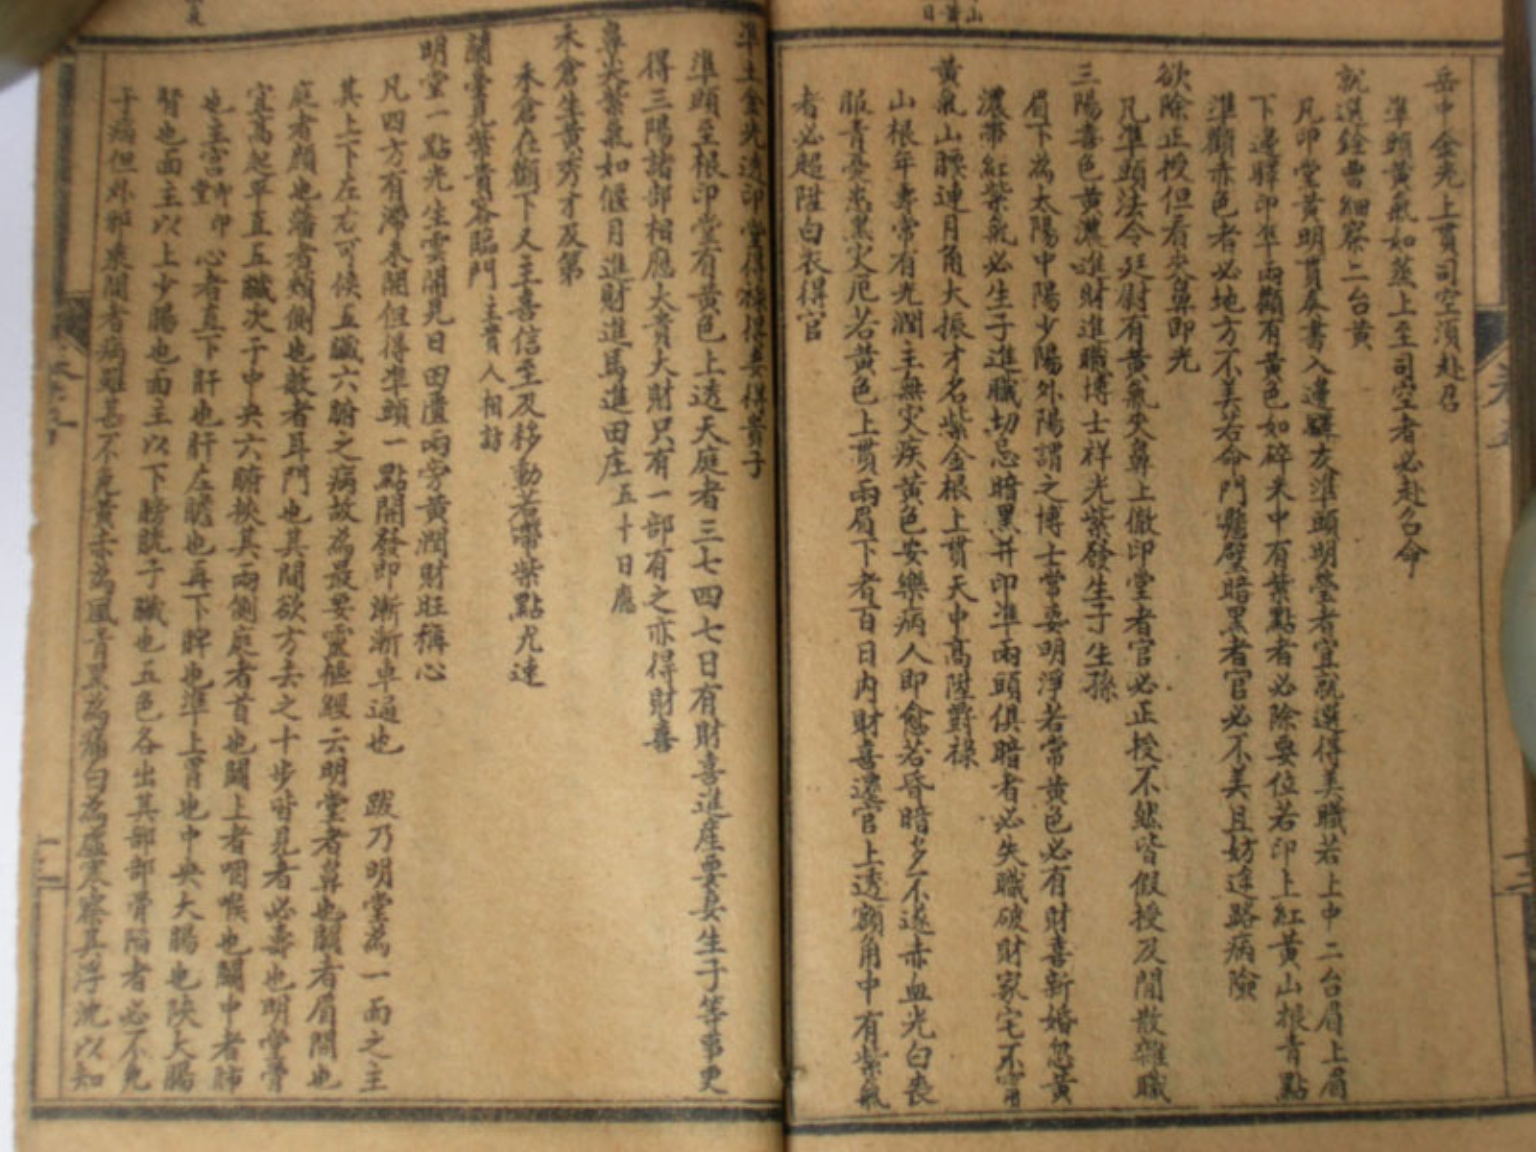 岳中金光上貫司空須赴召
準頭黃氣如蒸上至司空者必赴召命
就選銓曹細察二台黃
凡印堂黃明貫奏書入邊驛友準頭明瑩者宜就選得美職若上中二台眉上眉
下邊驛印準兩顴有黃色如碎米中有紫點者必除要位若印上紅黃山根青點
準顴赤色者必地方不美若命門懸壁暗黑者官必不美且妨途路病險
欲除正授但看夾鼻即光
凡準頭法令廷尉有黃氣夾鼻上徹印堂者官必正授不然皆假授及閒散雜職
三陽喜色黃濃進財進職博士祥光紫發生子生孫
眉下為太陽中陽少陽外陽謂之博士常要明淨若常黃色必有財喜新婚忽黃
濃帶紅紫氣必生子進職切忌暗黑并印準兩頭俱暗者必失職破財家宅不寧
黃氣山腰連月角大振才名紫金根上貫天中高陞爵祿
山根年壽常有光潤主無災疾黃色安樂病人即愈若昏暗多不遂赤血光白喪
服青憂恙黑災厄若黃色上貫兩眉下者百日內財喜還官上透額角中有紫氣
者必超陞白衣得官
準土金光透印堂得祿得妻得貴子
準頭至根印堂有黃色上透天庭者三七四七日有財喜進產要妻生子等事更
得三陽諸部相應大貴大財只有一部有之亦得財喜
鼻夾紫氣如偃月進財進馬進田庄五十日應
禾倉生黃秀才及第
禾倉在顴下又主喜信至及移動若帶紫點尤速
蘭臺見紫貴客臨門主貴人相訪
明堂一點光生雲開見日田廬兩旁黃潤財旺稱心
凡四方有滯未開但得準頭一點開發即漸漸卓遍也 跋乃明堂為一面之主
其上下左右可候五臟六腑之病故為最要靈樞經云明堂者鼻也闕者眉間也
庭者顏也藩者頰側也蔽者耳門也其間欲方去之十步皆見者必壽也明堂骨
宜高起平直五臟次于中央六腑挾其兩側庭者首也闕上者咽喉也闕中者肺
也主宮堂即印心者直下肝也肝左膽也再下脾也準上胃也中央大腸也陝大腸
腎也面主以上少腸也面主以下膀胱子臟也五色各出其部部骨陷者必不免
于病但外邪乘間者病雖甚不免黃赤為風青黑為痛白為虛寒察其浮沈以知